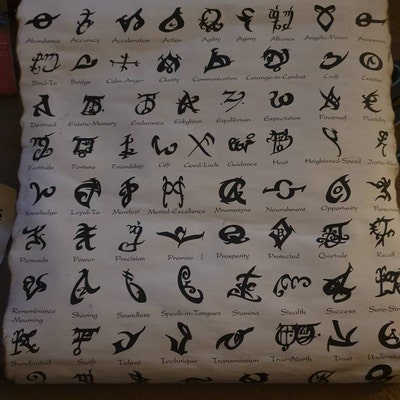 Abundance Accuracy Acceleration Action Agility Agony Alliance Angelic-Power Awareness
Bind-To Bridge Calm-Anger Clarity Communication Courage-in-Combat Craft Creation
Deemed Eidetic-Memory Endurance Enlighten Equilibrium Expectation Fireproof Flexibility
Fortitude Fortune Friendship Gift Good-Luck Guidance Heat Heightened-Speed
Knowledge Loyal-To Manifest Mental-Excellence Mnemosyne Nourishment Opportunity
Persuade Power Precision Promise Prosperity Protected Quietude Recall
Remembrance Sharing Soundless Speak-in-Tongues Stamina Stealth Success
-Mourning
Surefooted Swift Talent Technique Transmission True-North Trust